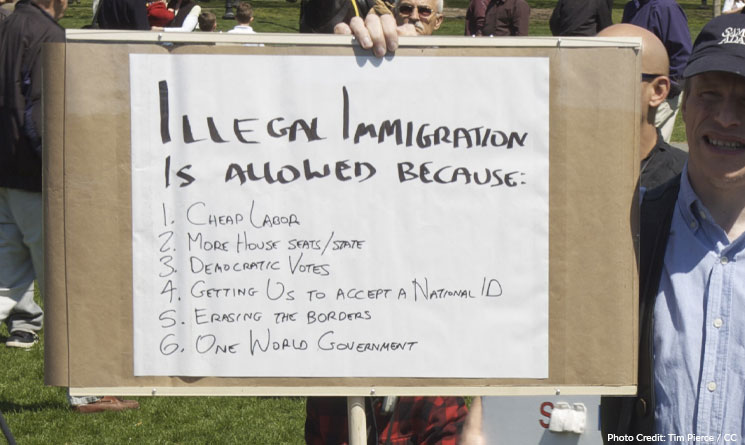 Illegal Immigration
Is allowed because:
1. Cheap Labor
2. More House seats/state
3. Democratic Votes
4. Getting Us to accept a National ID
5. Erasing the borders
6. One World Government
S
Photo Credit: Tim Pierce / CC